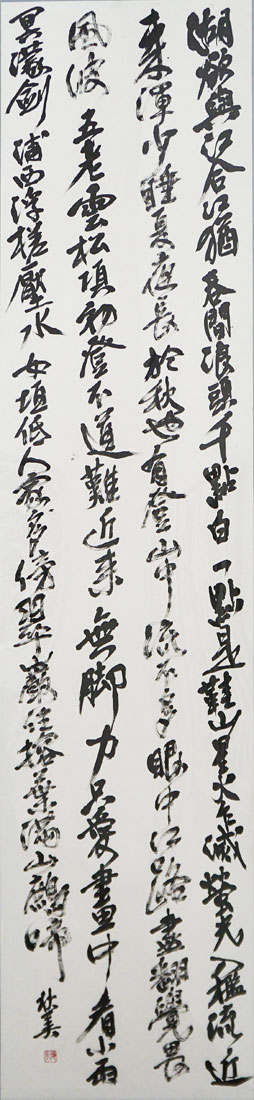 湖能與江合江猶吞間浪頭千點白一點是鞋山星火乍滅螢光入艦流近
來渾少睡夏夜長於秋也有登山巾流不多眼中江路盡翻覺畏
風波五老雲松頂初登不道難近来無脚力只愛畫中看小雨
冥濛劍浦西浮槎壓水女垣低人家多傍翠巖住榕葉滿山鷓啼